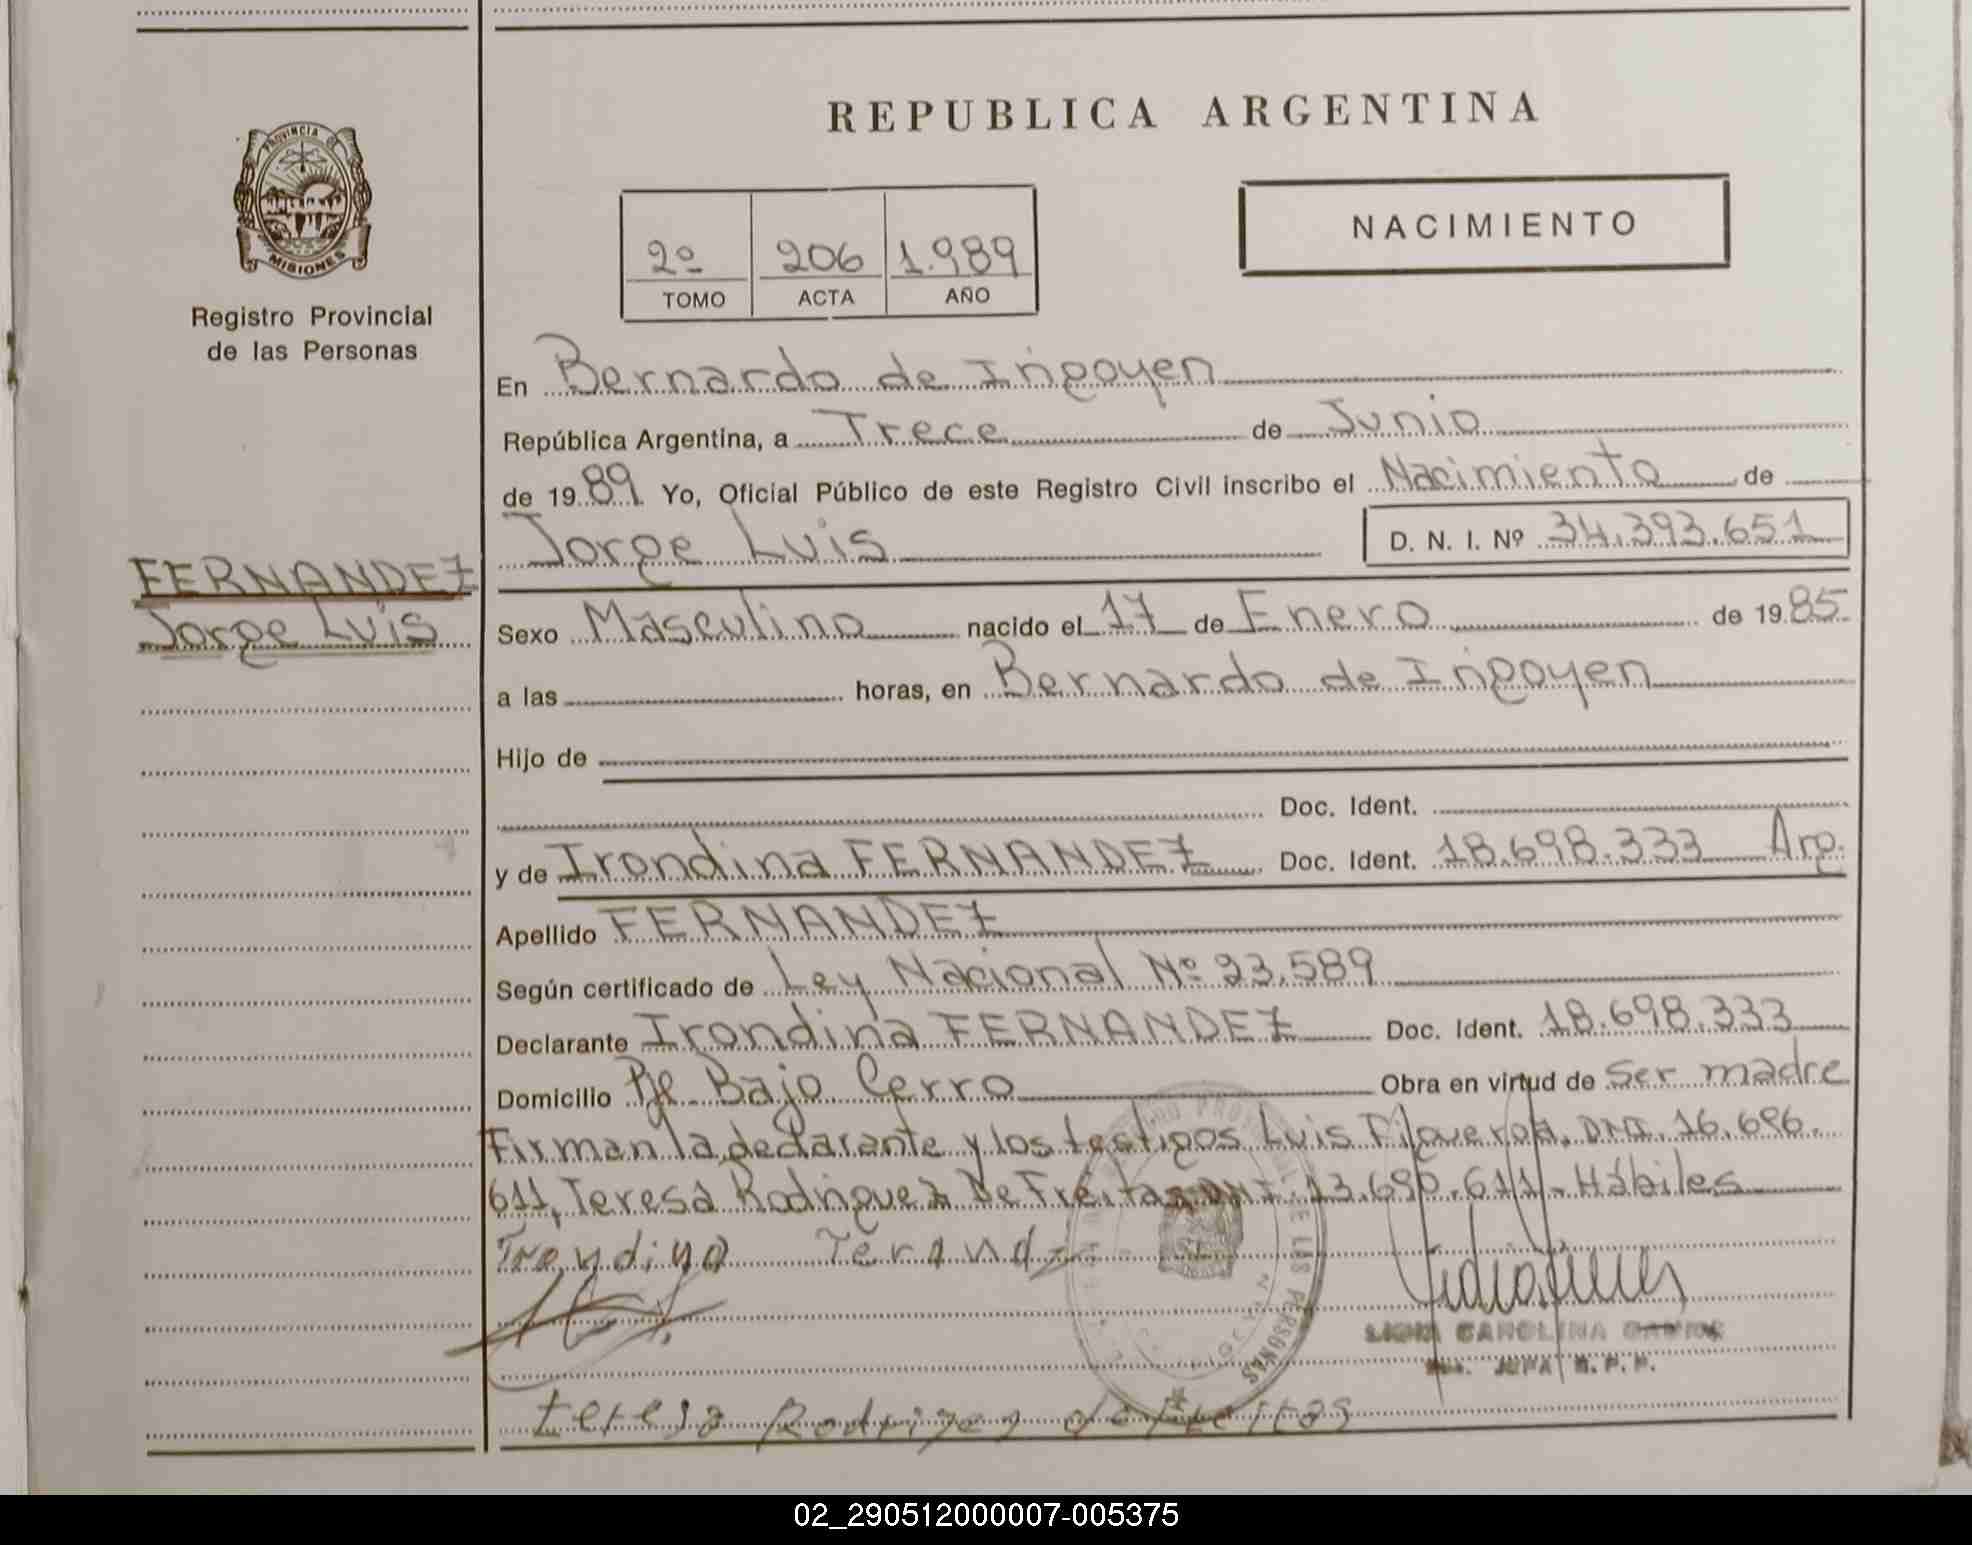 REPUBLICA ARGENTINA
PROVINCIA DE
MISIONES
Registro Provincial
de las Personas
2º 206 1.989
TOMO ACTA AÑO
NACIMIENTO
En Bernardo de Irigoyen
República Argentina, a Trece de Junio
de 1989 Yo, Oficial Público de este Registro Civil inscribo el Nacimiento de
Jorge Luis D. N. I. Nº 34.393.651
FERNANDEZ
Jorge Luis
Sexo Masculino nacido el 17 de Enero de 1985
a las horas, en Bernardo de Irigoyen
Hijo de
Doc. Ident.
y de Irondina FERNANDEZ Doc. Ident. 18.698.333 Arg.
Apellido FERNANDEZ
Según certificado de Ley Nacional Nº 23.589
Declarante Irondina FERNANDEZ Doc. Ident. 18.698.333
Domicilio Pje Bajo Cerro Obra en virtud de Ser madre
Firman la declarante y los testigos Luis Figueroa, DNI. 16.696.
611, Teresa Rodriguez De Freitas DNI. 13.690.611 - Hábiles
LAS PERSONAS
CAROLINA
teresa Rodrigez de Freitas
02_290512000007-005375